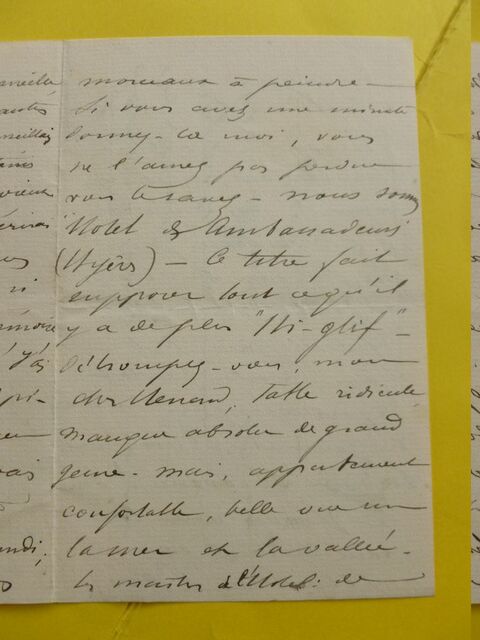 morceaux à peindre -
Si vous avez une minute
donnez-la moi, vous
ne l'aurez pas perdue
vous le savez - nous sommes
Hotel des Ambassadeurs
(Hyères) - Ce titre fait
supposer tout ce qu'il
y a de plus "Hi-glif" -
Détrompez-vous, mon
cher Menard, table ridicule,
manque absolu de grand
genre - mais, appartement
confortable, belle vue sur
la mer et la vallée -
les maitres de l'Hotel : de